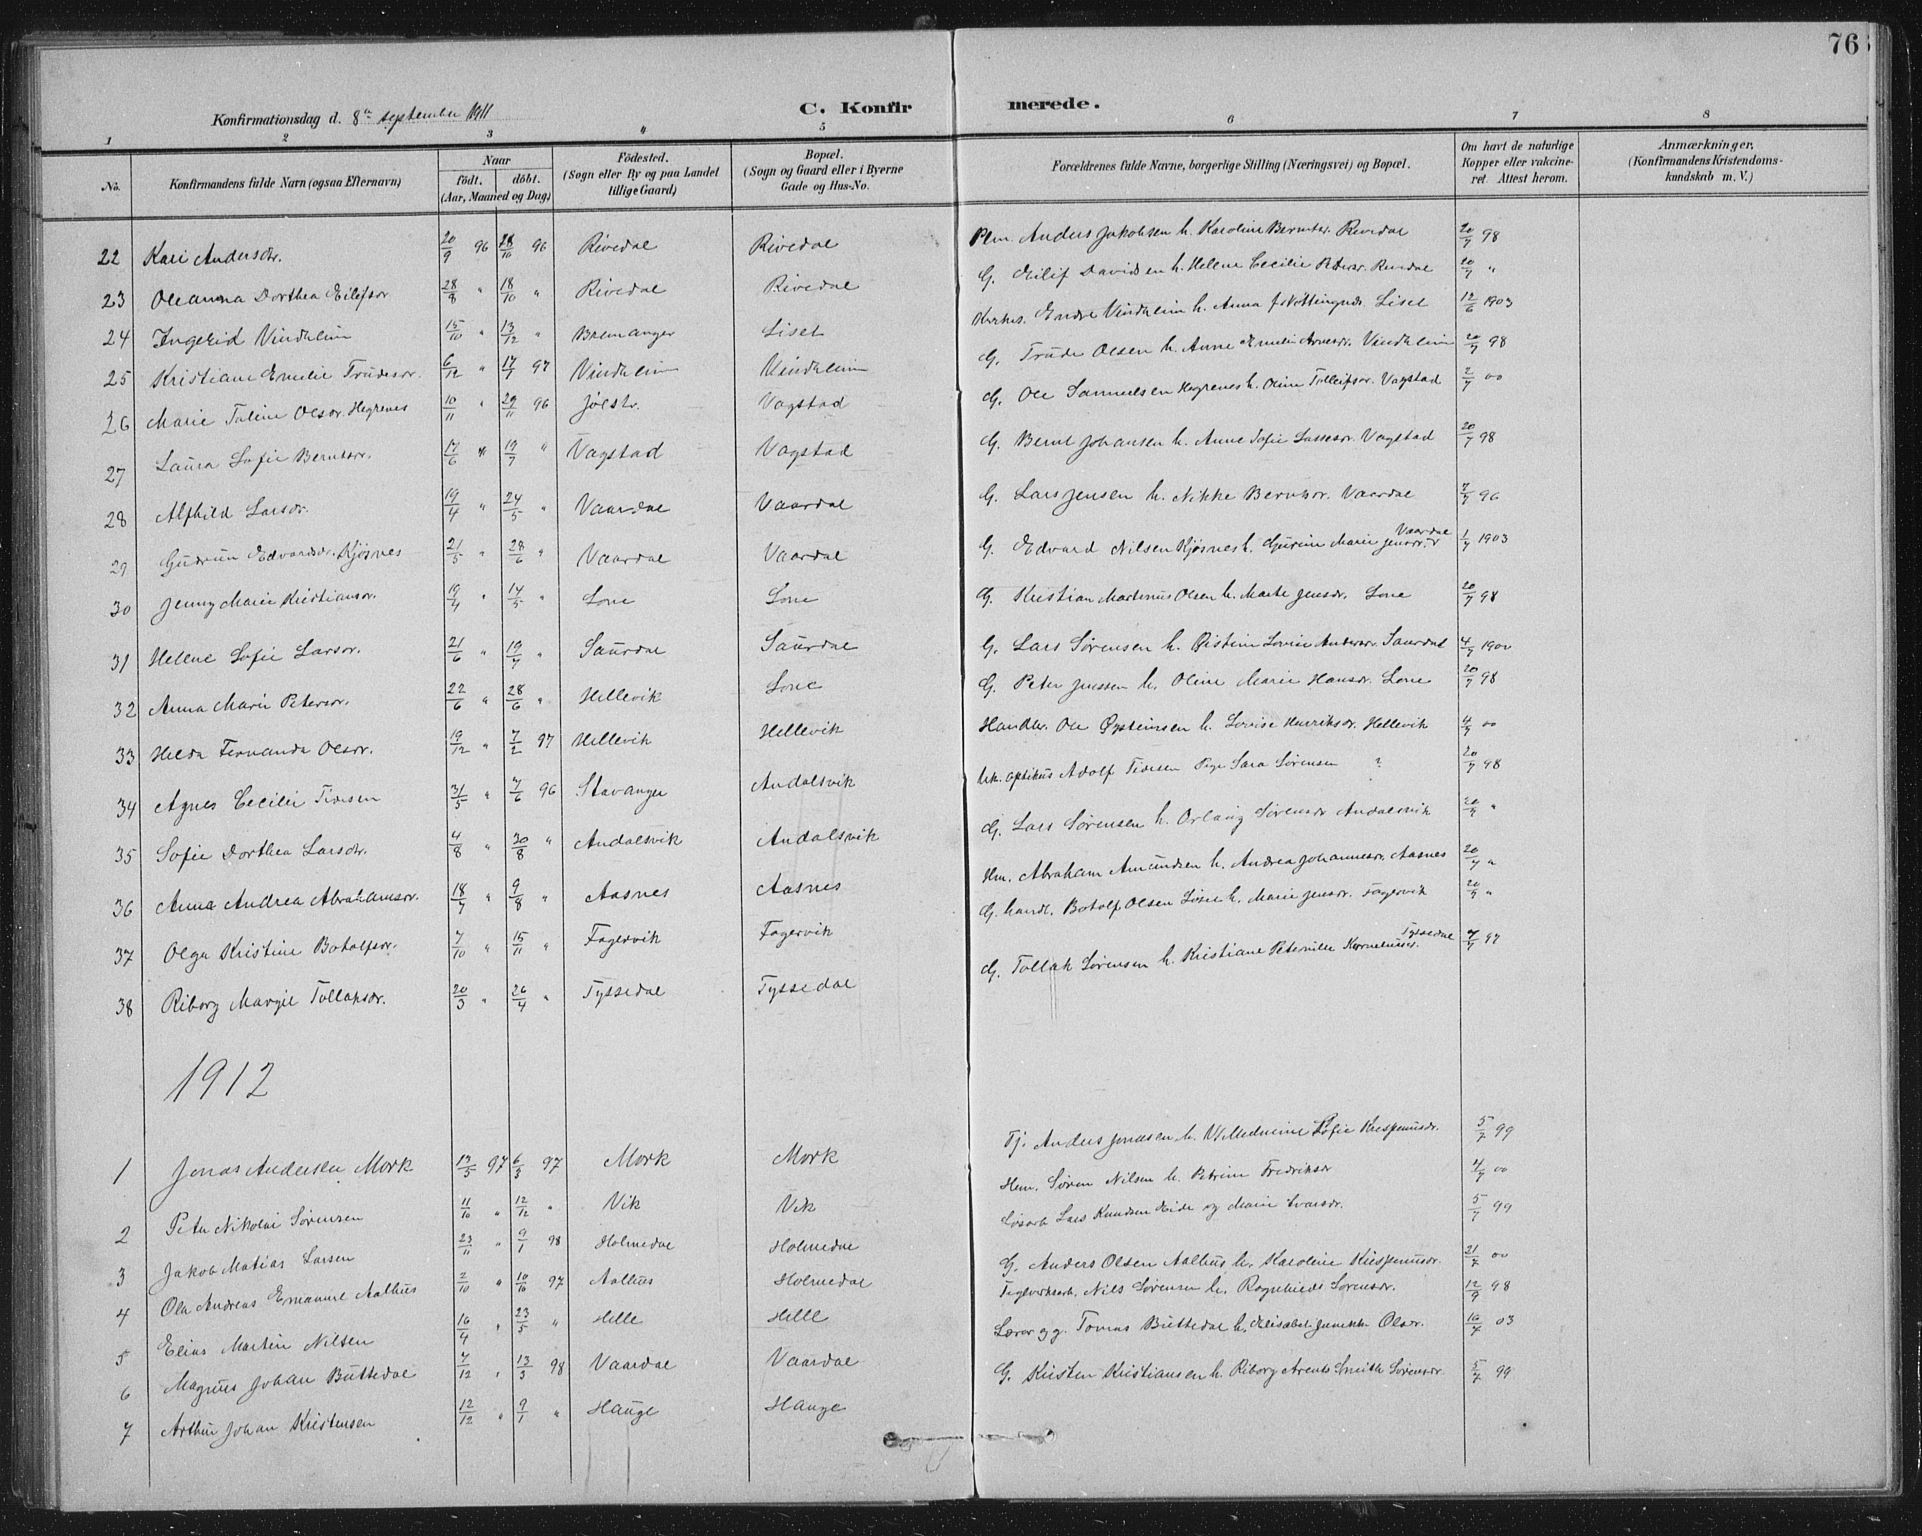 76
Konfirmationsdag d. 8de september 1911
C. Konfirmerede.
1 2 3 4 5 6 7 8
No. Konfirmandens fulde Navn (ogsaa Efternavn) Naar födt. döbt. (Aar, Maaned og Dag) Födested. (Sogn eller By og paa Landet tillige Gaard) Bopæl. (Sogn og Gaard eller i Byerne Gade og Hus-No. Forældrenes fulde Navne, borgerlige Stilling (Næringsvei) og Bopæl. Om havt de naturlige Kopper eller vakcineret Attest herom. Anmærkninger, (Konfirmandens Kristendomskundskab m. V.)
22 Kari Andersdr. 20/9 96 28/10 96 Rivedal Rivedal Plm. Anders Jakobsen h. Karoline Berntsr. Rivedal 20/7 98
23 Oleanna Dorthea Eilifsdr 28/8 " 18/10 " Rivedal Rivedal G. Eilif Davidsen h. Helene Cecilie Petersr. Rivedal 20/7 "
24 Ingerid Vindheim 15/10 " 13/12 " Bremanger Liset Kirkes. Endre Vindheim h. Anna f. Nöttingnes Liset 12/6 1903
25 Kristiane Emelie Trudesdr. 6/12 " 17/1 97 Vindheim Vindheim G. Trude Olsen h. Anne Emelie Arnesdr. Vindheim 20/7 98
26 Marie Taline Olsdr Hegrenes 10/11 " 29/11 96 Jølstr. Vagstad G. Ole Samuelsen Hegrenes h. Oline Tolleifsdr. Vagstad 2/7 00
27 Laura Sofie Berntsdr. 17/6 " 19/7 " Vagstad Vagstad G. Bernt Johansen h. Anne Sofie Lassesdr. Vagstad 20/7 98
28 Alfhild Larsdr. 19/4 " 24/5 " Vaardal Vaardal G. Lars Jensen h. Nikke Berntsdr. Vaardal 7/7 96
29 Gudrun Edvardsdr. Kjøsnes 21/5 " 28/6 " Vaardal Vaardal G. Edvard Nilsen Kjøsnes h. Gurine Marie Jensdr. Vaardal 1/7 1903
30 Jenny Marie Kristiansdr. 19/4 " 14/5 " Lone Lone G. Kristian Martinus Olsen h. Marte Jensdr. Lone 20/7 98
31 Helene Sofie Larsdr. 21/6 " 19/7 " Saurdal Saurdal G. Lars Sørensen h. Øistine Lovise Andersdr. Saurdal 4/7 1900
32 Anna Marie Petersdr. 22/6 " 28/6 " Hellevik Lone G. Peter Jenssen h. Oline Marie Hansdr. Lone 20/7 98
33 Helda Fernanda Olsdr. 19/12 " 7/2 97 Hellevik Hellevik Handler. Ole Øysteinsen h. Lovise Henriksdr. Hellevik 4/7 00
34 Agnes Cecilie Tidesen 31/5 " 7/6 96 Stavanger Andalsvik Uk. optikus Adolf Tidesen Pige Sara Sørensen ? 20/7 98
35 Sofie Dorthea Larsdtr. 4/8 " 30/8 " Andalsvik Andalsvik G. Lars Sørensen h. Orlaug Sørensdr Andalsvik 20/7 "
36 Anna Andrea Abrahamsdr. 18/7 " 9/8 " Aasnes Aasnes Hm. Abraham Amundsen h. Andrea Johannesdr. Aasnes 20/7 "
37 Olga Kristine Botolfsdr. 7/10 " 15/11 " Fagervik Fagervik G. handl. Botolf Olsen h. Marie Jensdr. Fagervik 20/7 "
38 Riborg Margit Tollaksdr. 20/3 " 26/4 " Tyssedal Tyssedal G. Tollak Sørensen h. Kristiane Peternille Korneliusdr. Tyssedal 7/7 97
1912
1 Jonas Andersen Mork 13/5 97 6/3 97 Mork Mork Tj. Anders Jonasen h. Willedmine Sofie Krispinusdr. 5/7 99
2 Peter Nikolai Sørensen 11/10 " 12/12 " Vik Vik Hem. Søren Nilsen h. Petrine Fredriksdr 4/7 00
3 Jakob Matias Larsen 23/11 " 9/1 98 Holmedal Holmedal Løsarb Lars Knudsen Eide og Marie Ivarsdr. 5/7 99
4 Ole Andreas Emanuel Aalhus 2/10 " 10/10 97 Aalhus Holmedal G. Anders Olsen Aalhus h. Karoline Krispinusdr. 21/7 00
5 Elias Martin Nilsen 16/4 " 23/5 " Hille Hille Teglverksarb. Nils Sørensen h. Ragnhild Sørensdr. 12/9 98
6 Magnus Johan Buttedal 7/12 " 13/3 98 Vaardal Vaardal Lærer og g. Tomas Buttedal h. Elisabet Olsdr. 16/7 03
7 Arthur Johan Kristensen 12/12 " 9/1 " Hauge Hauge G. Kristen Kristiansen h. Riborg Arents Smith Sørensdr. 5/7 99